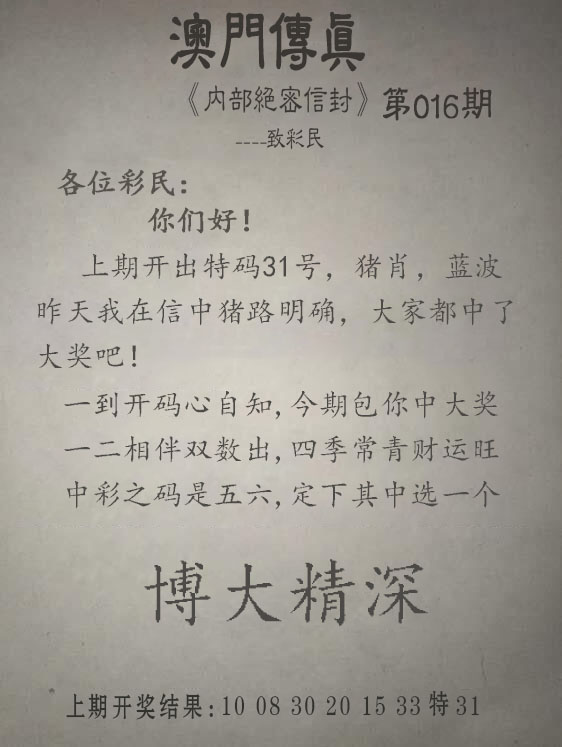 澳門傳眞
《内部絕密信封》第016期
----致彩民
各位彩民：
你们好！
上期开出特码31号，猪肖，蓝波
昨天我在信中猪路明确，大家都中了
大奖吧！
一到开码心自知,今期包你中大奖
一二相伴双数出,四季常青财运旺
中彩之码是五六,定下其中选一个
博大精深
上期开奖结果:10 08 30 20 15 33 特31